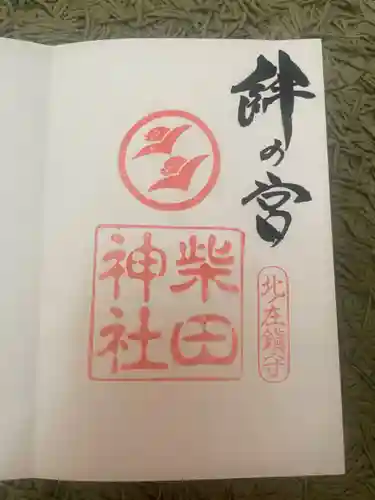 絆の宮
北在鎮守
柴田
神社